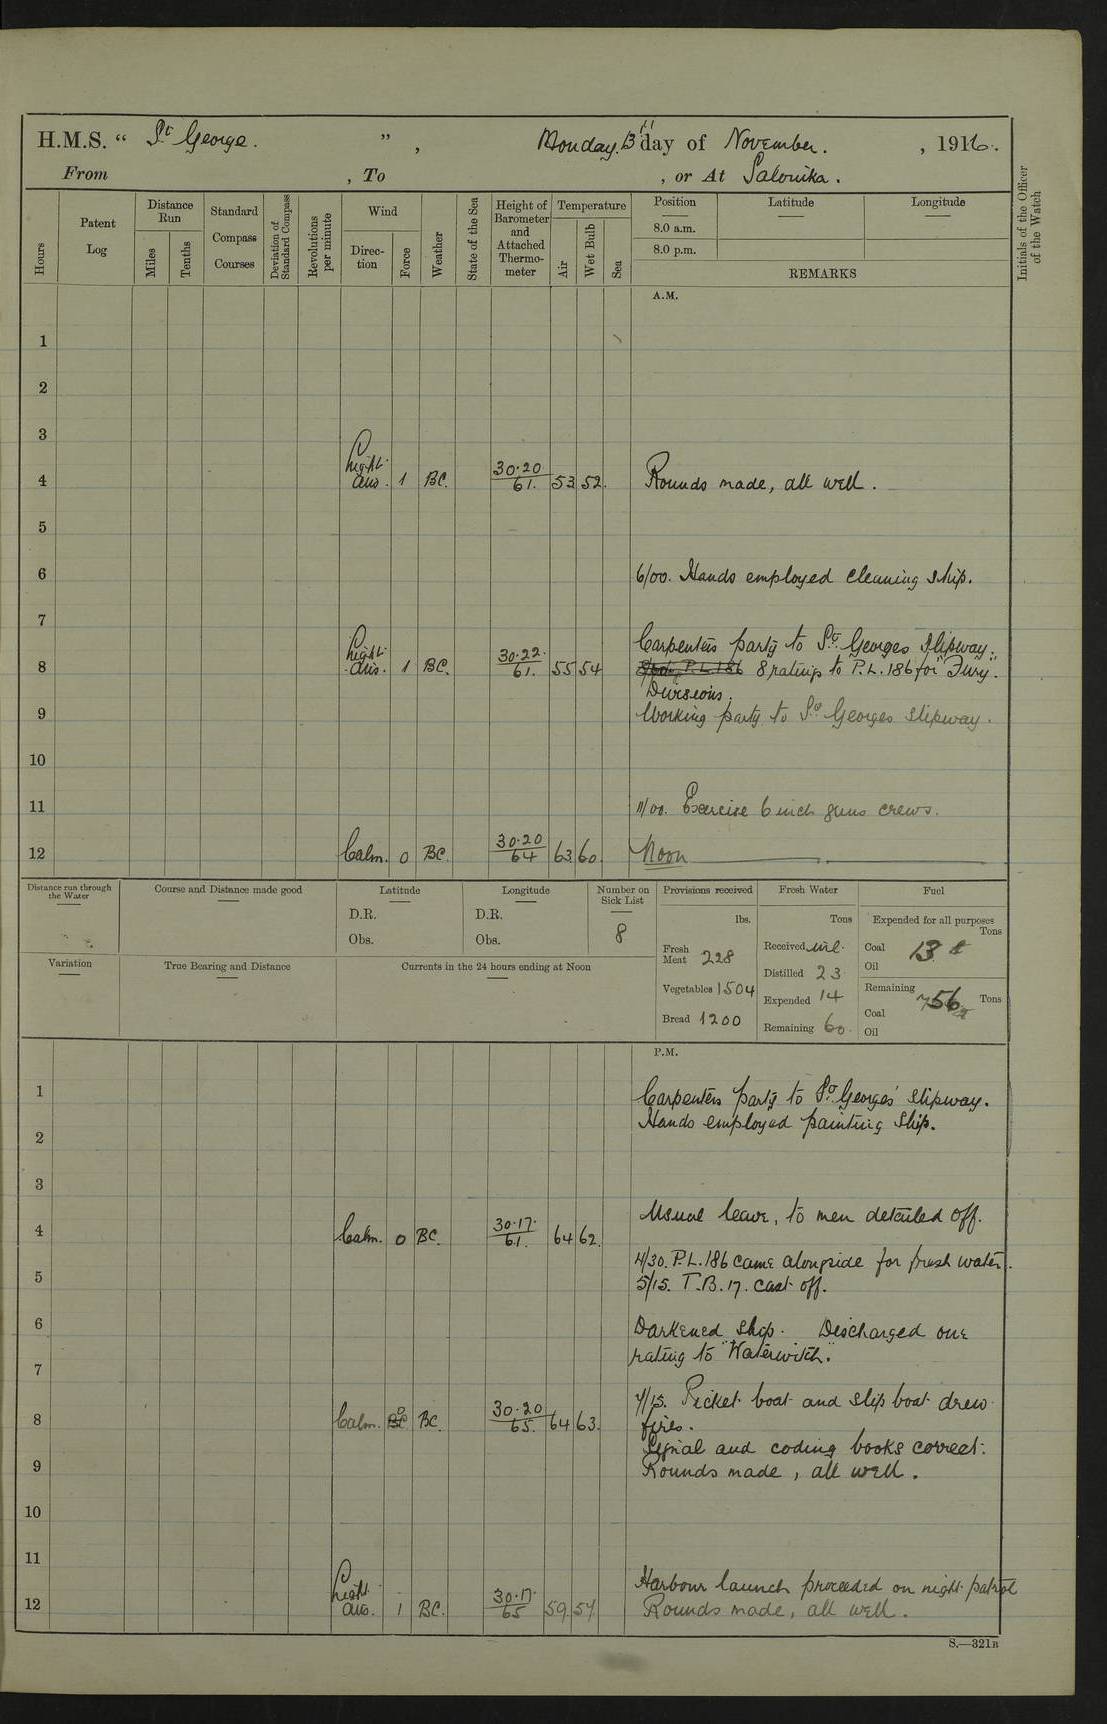 H.M.S. " St George. ", Monday 13th day of November. , 1916.
From , To , or At Salonika.
Hours
Patent Log
Distance Run
Miles
Tenths
Standard Compass Courses
Deviation of Standard Compass
Revolutions per minute
Wind
Direc-tion
Force
Weather
State of the Sea
Height of Barometer and Attached Thermo-meter
Temperature
Air
Wet Bulb
Sea
Position
Latitude
Longitude
8.0 a.m.
8.0 p.m.
REMARKS
Initials of the Officer of the Watch
A.M.
1
2
3
4 Light airs. 1 BC. 30.20 61. 53 52. Rounds made, all well.
5
6 6/00. Hands employed cleaning ship.
7
Carpenters party to St. Georges slipway.
8 Light airs. 1 BC. 30.22. 61. 55 54 8 ratings to P.L. 186 for "Fury".
Divisions.
9 Working party to St Georges slipway.
10
11 11/00. Exercise 6 inch guns crews.
12 Calm. 0 BC. 30.20 64 63 60. Noon
Distance run through the Water
Course and Distance made good
Latitude
D.R.
Obs.
Longitude
D.R.
Obs.
Number on Sick List
8
Provisions received
lbs.
Fresh Meat 228
Vegetables 1504
Bread 1200
Fresh Water
Tons
Received nil.
Distilled 23
Expended 14
Remaining 60.
Fuel
Expended for all purposes
Tons
Coal 13
Oil
Remaining
Tons
Coal 756
Oil
Variation
True Bearing and Distance
Currents in the 24 hours ending at Noon
P.M.
1 Carpenters party to St. Georges' slipway.
Hands employed painting ship.
2
3
Usual leave, to men detailed off.
4 Calm. 0 BC. 30.17. 61. 64 62.
4/30. P.L. 186 came alongside for fresh water.
5 5/15. T.B. 17. cast off.
6 Darkened ship. Discharged one
rating to "Waterwitch".
7
7/15. Picket boat and slip boat drew
8 Calm. 0 BC. 30.20 65. 64 63. fires.
Signal and coding books correct.
9 Rounds made, all well.
10
11
Harbour launch proceeded on night patrol
12 Light airs. 1 BC. 30.17. 65 59 57. Rounds made, all well.
S.—321B